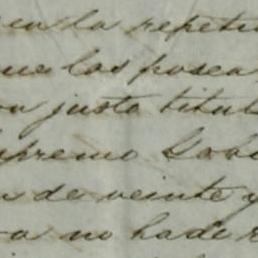 en la repeti
que las posea
on justo titul
upremo Gob
n de veinte y
a no hade r